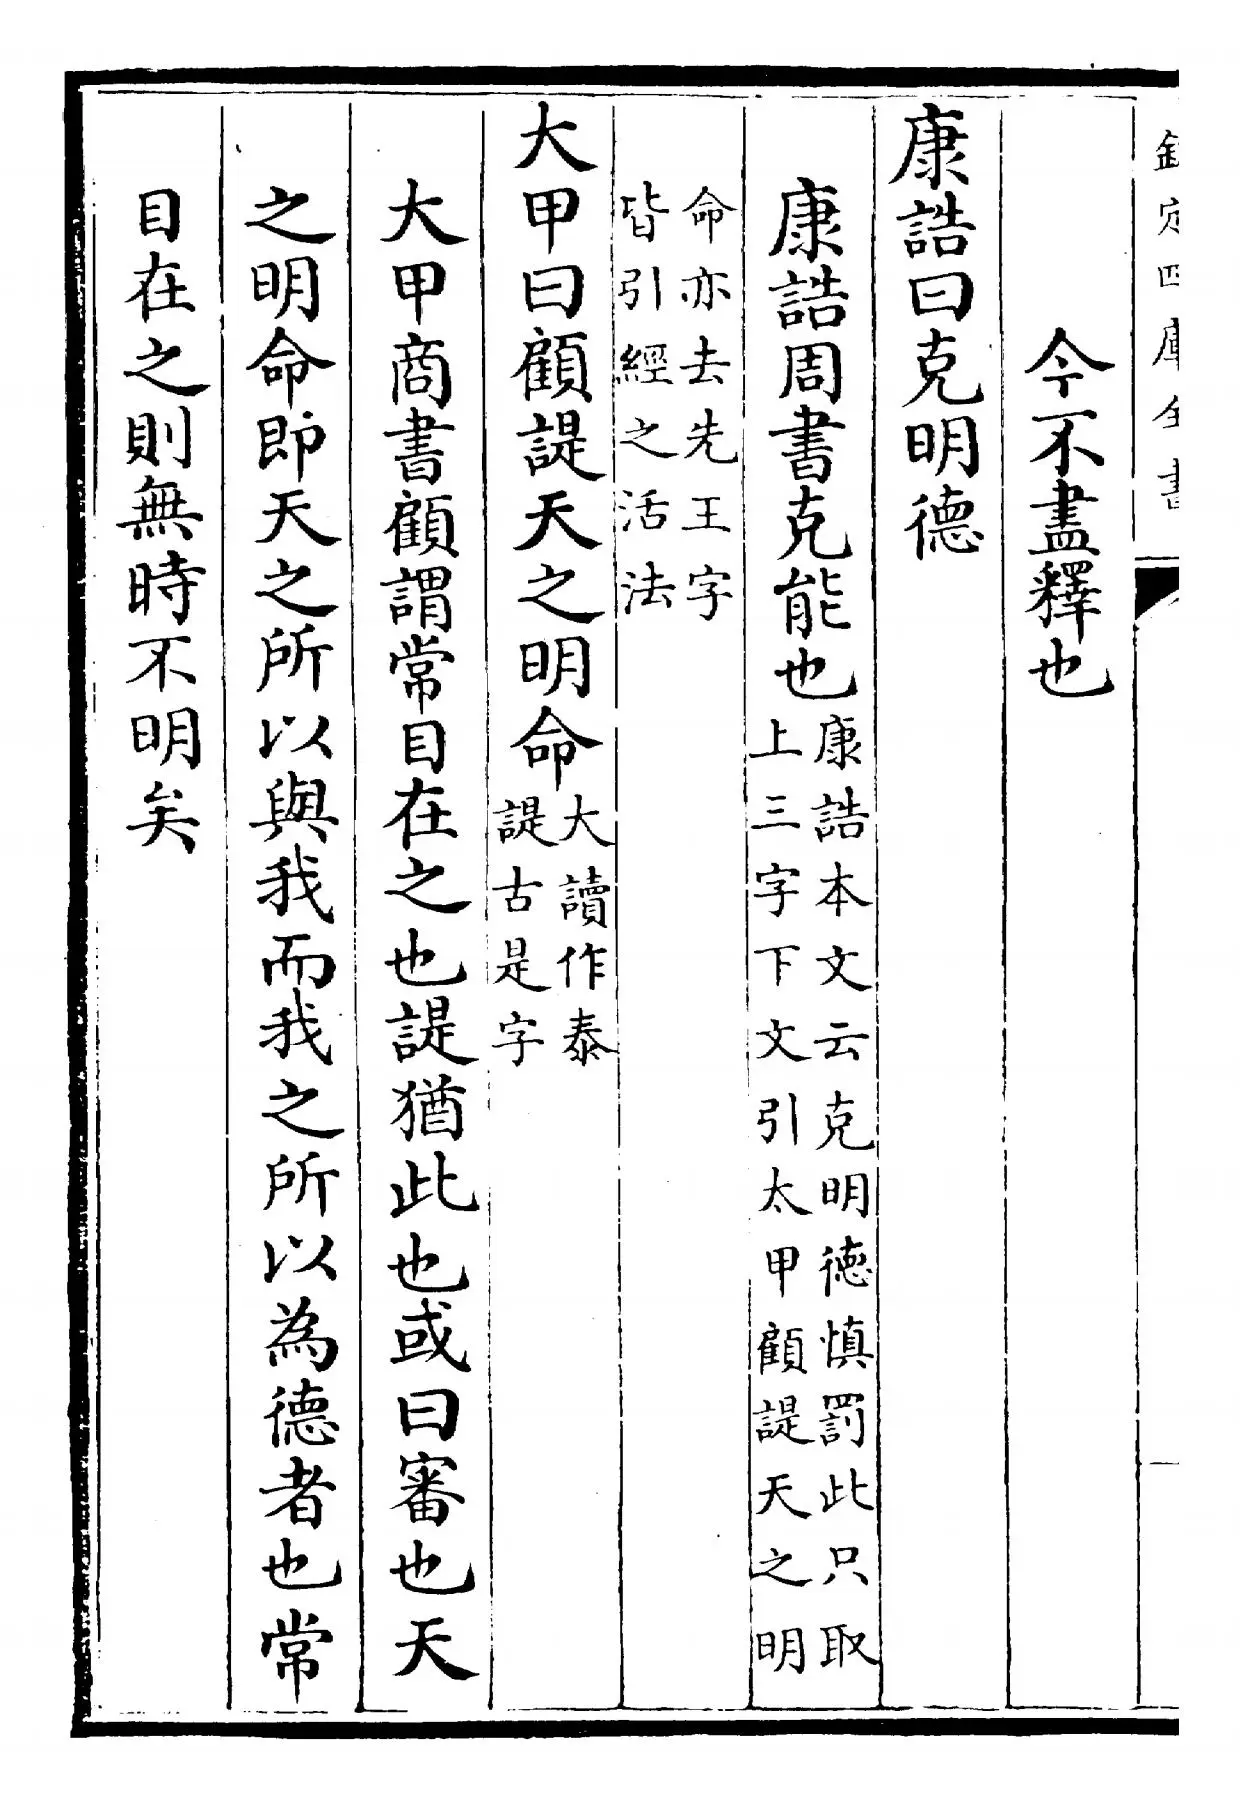 欽定四庫全書
今不盡釋也
康誥曰克明德
康誥周書克能也康誥本文云克明德慎罰此只取
上三字下文引太甲顧諟天之明
命亦去先王字
皆引經之活法
大甲曰顧諟天之明命大讀作泰
諟古是字
大甲商書顧謂常目在之也諟猶此也或曰審也天
之明命即天之所以與我而我之所以為德者也常
目在之則無時不明矣